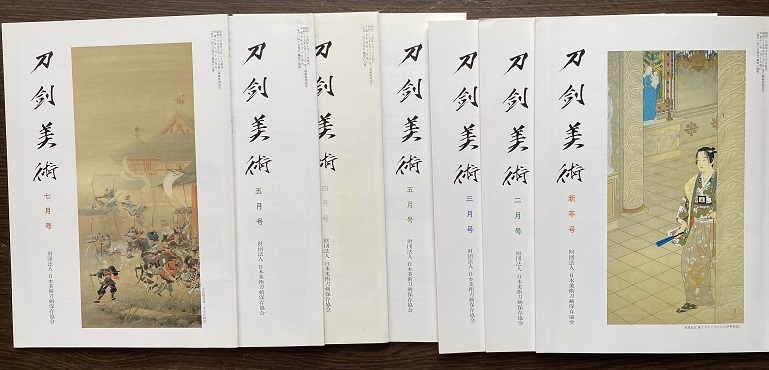 刀剣美術
七月号
財団法人 日本美術刀剣保存協会
刀剣美術
五月号
財団法人 日本美術刀剣保存協会
刀剣美術
四月号
財団法人 日本美術刀剣保存協会
刀剣美術
五月号
財団法人 日本美術刀剣保存協会
刀剣美術
三月号
財団法人 日本美術刀剣保存協会
刀剣美術
二月号
財団法人 日本美術刀剣保存協会
刀剣美術
新年号
財団法人 日本美術刀剣保存協会